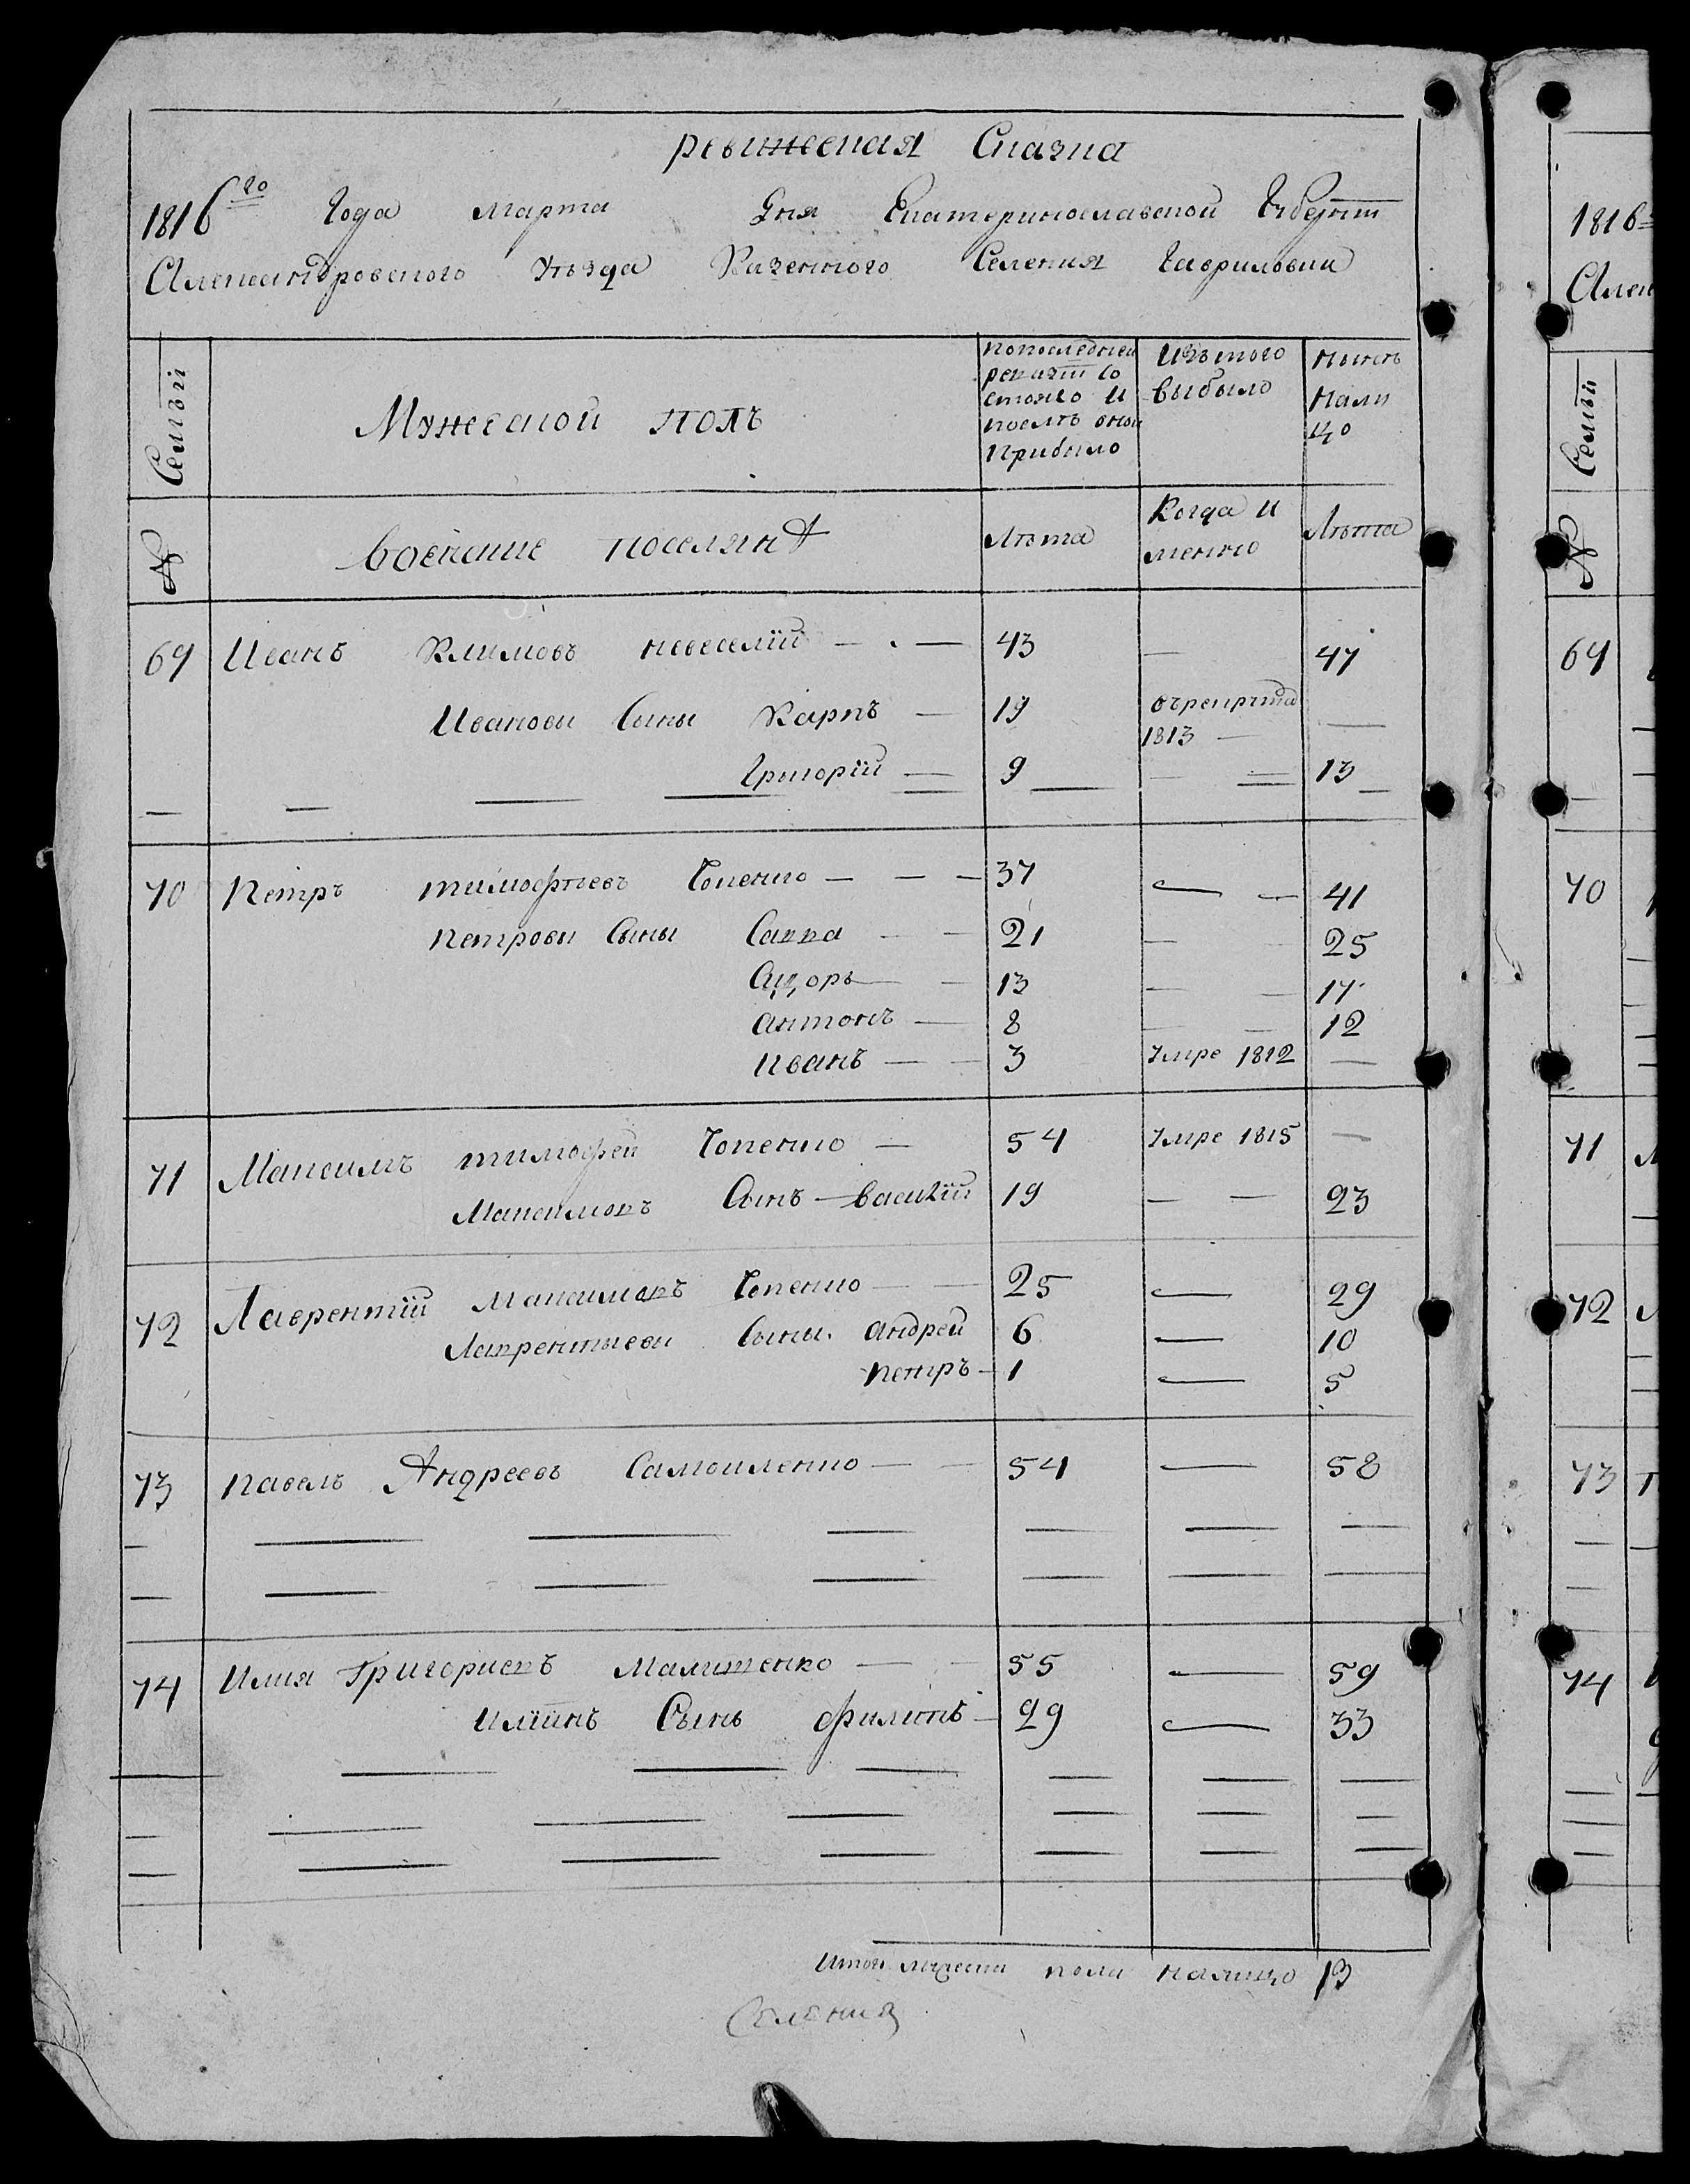 ревижеская Сказка
1816го Года марта Дня Екатеринославской Губерніи
Александровского Уезда Казенного Селения Гавриловки
Семьи
Мужеской полъ
попоследней
ревизіи со
стояло и
после оной
прибыло
Изътого
выбыло
ныне
нали
цо
№
воєнние поселяне
лѣта
Когда и
менно
Лѣта
69 Иванъ Климовъ невеселій — . — 43 — 47
Иванови Сыны Карпъ — 19 врекрута
1813 — —
Григорій — 9 — — 13
70 Петръ тимофеевъ Сопенко — — — 37 — — 41
Петрови Сыны Савва — — 21 — 25
Сидоръ — — 13 — — 17
антонъ — 8 — — 12
иванъ — — 3 Умре 1812 —
71 Максимъ тимофей Сопенко — 54 Умре 1815 —
Максимовъ Сынъ — василій 19 — — 23
72 Лаврентій Максимовъ Сопенко — — 25 — 29
Лаврентьеви Сыны. андрей 6 — 10
петръ — 1 — 5
73 павелъ Андреевъ Самойленко — — 54 — 58
74 Илия Григориевъ Малишенко — — 55 — 59
илїинъ Сынъ филипъ — 29 — 33
Итого мужеска пола налицо 13
Селения
1816
Алек
Семьи
№
69
70
71
72
73
74